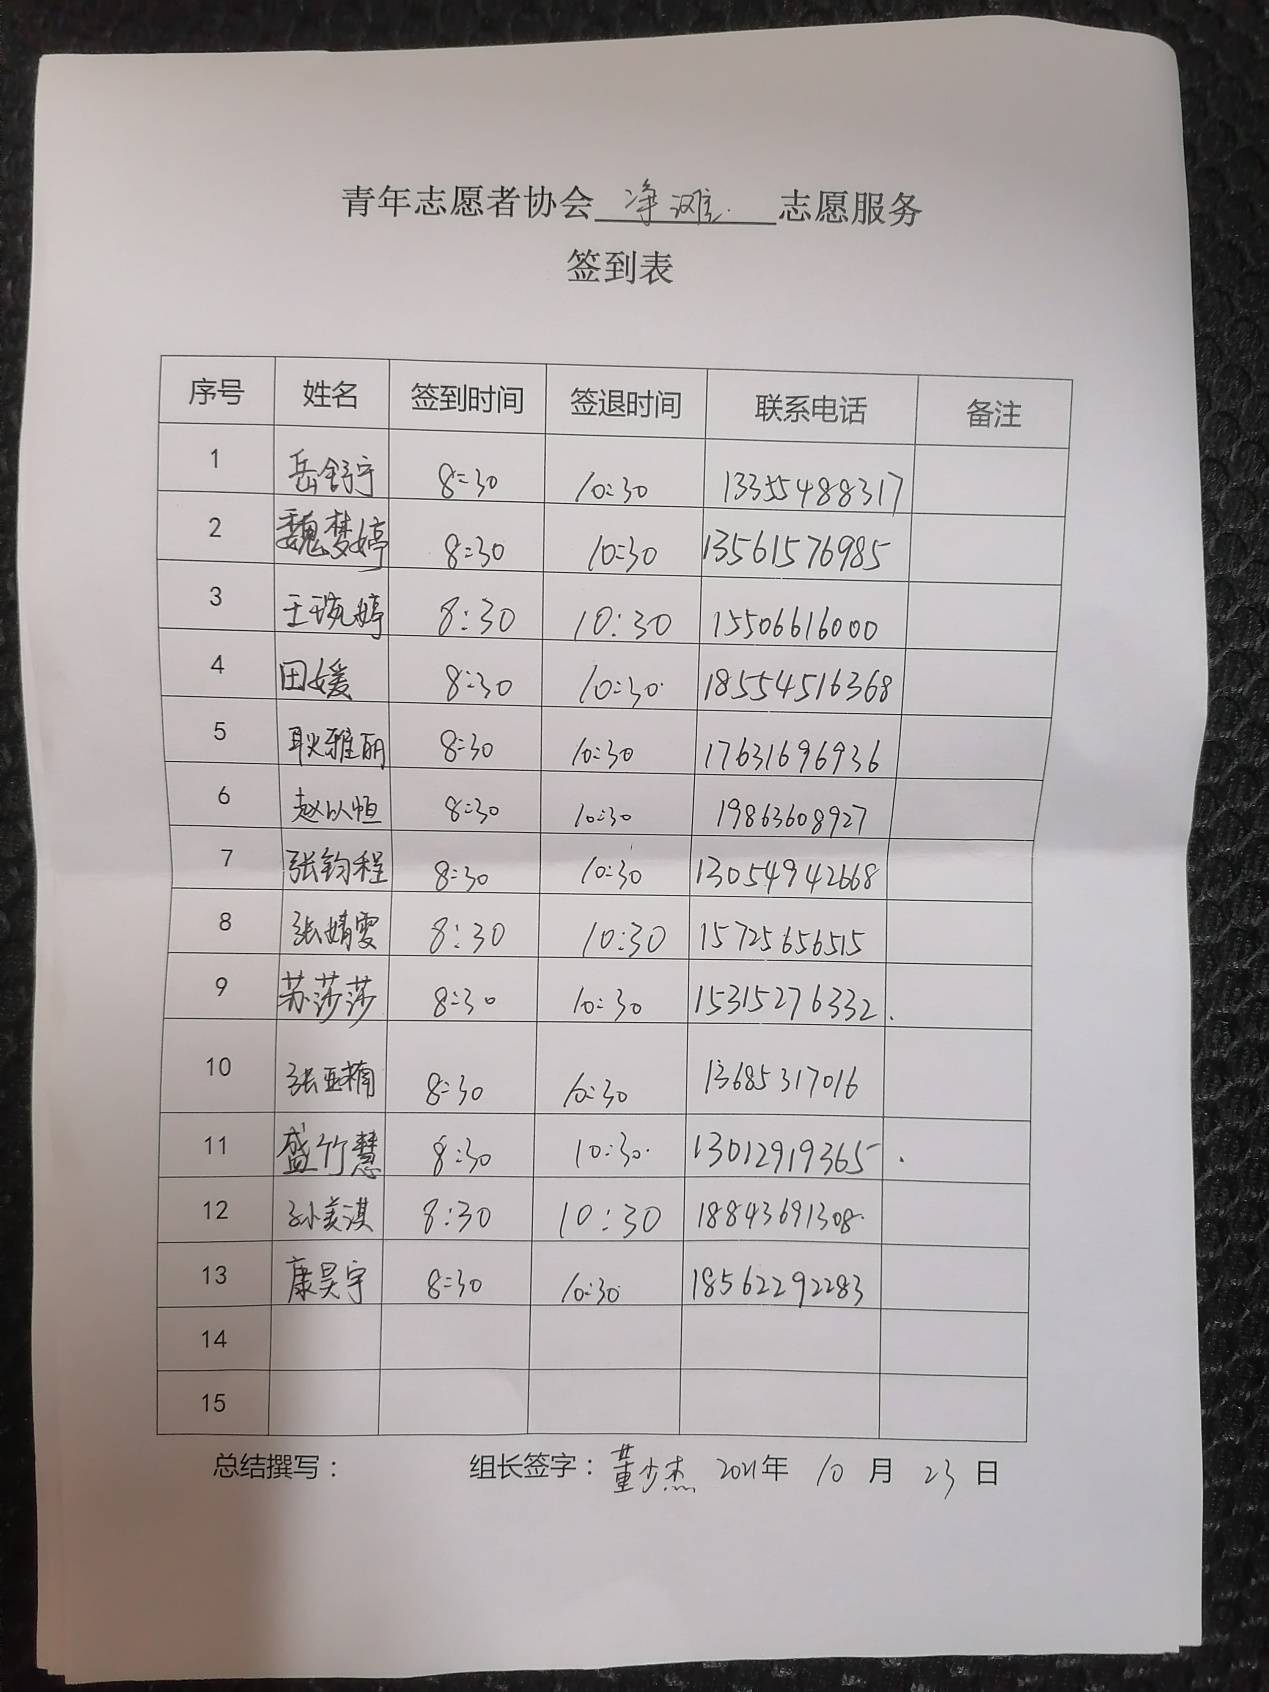 青年志愿者协会 净滩 志愿服务
签到表
序号 姓名 签到时间 签退时间 联系电话 备注
1 岳舒宁 8:30 10:30 13355488317
2 魏梦婷 8:30 10:30 13561576985
3 王琬婷 8:30 10:30 15506616000
4 田媛 8:30 10:30 18554516368
5 耿雅丽 8:30 10:30 17631696936
6 赵以恒 8:30 10:30 19863608927
7 张钧程 8:30 10:30 13054942668
8 张婧雯 8:30 10:30 15725656515
9 苏莎莎 8:30 10:30 15315276332
10 张亚楠 8:30 10:30 13685317016
11 盛竹慧 8:30 10:30 13012919365
12 孙美淇 8:30 10:30 18843691308
13 康昊宇 8:30 10:30 18562292283
14
15
总结撰写： 组长签字：董少杰 2021年 10 月 23 日